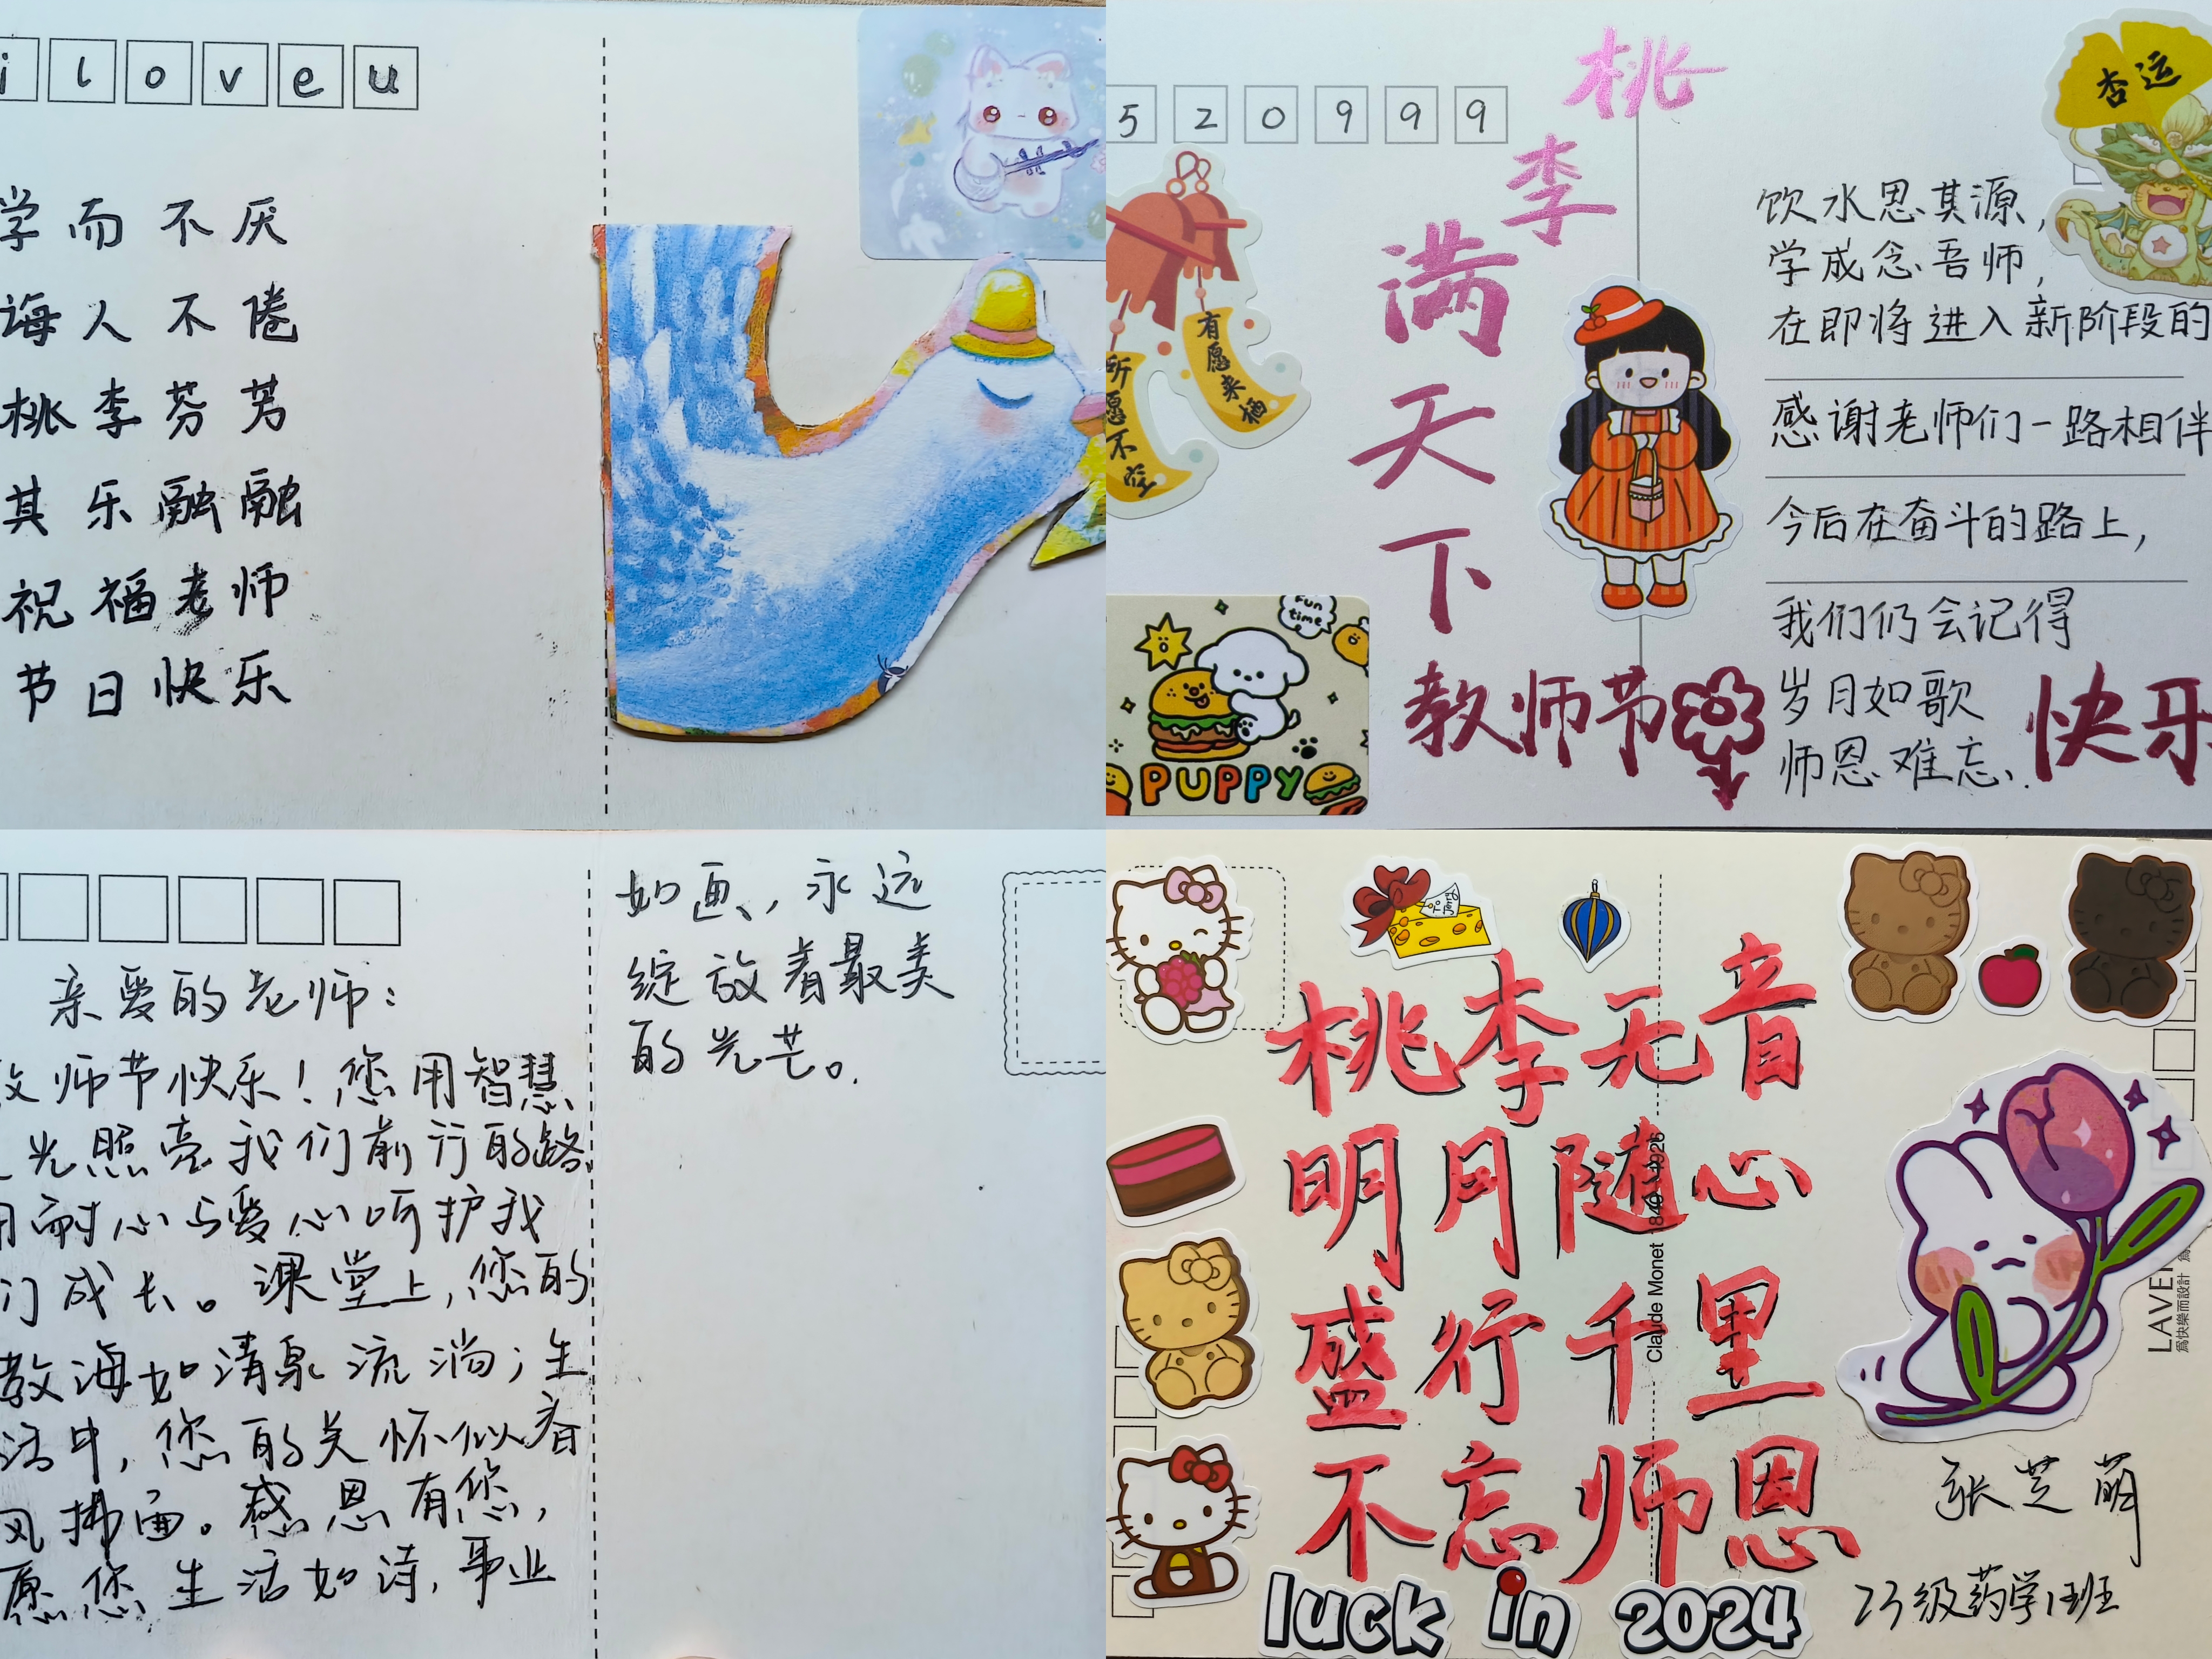 i l o v e u
学而不厌
诲人不倦
桃李芬芳
其乐融融
祝福老师
节日快乐
520999
桃李满天下
杏运
有愿来栖
所愿不空
饮水思其源，
学成念吾师，
在即将进入新阶段的
感谢老师们一路相伴
今后在奋斗的路上，
我们仍会记得
岁月如歌
师恩难忘.
教师节快乐
fun time
PUPPY
亲爱的老师：
教师节快乐！您用智慧
之光照亮我们前行的路
用耐心与爱心呵护我
们成长。课堂上，您的
教海如清泉流淌；生
活中，您的关怀似春
风拂面。感恩有您，
愿您生活如诗，事业
如画，永远
绽放着最美
的光芒。
桃李无音
明月随心
盛行千里
不忘师恩
Claude Monet 1840-1926
为快樂而設計
张芝萌
23级药学1班
luck in 2024